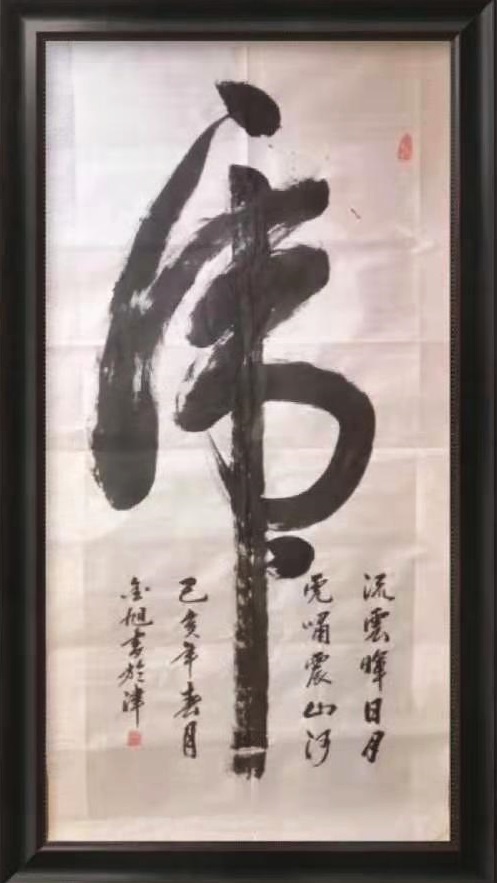 虎
流雲暉日月
虎嘯震山河
己亥年春月
金旭書於津